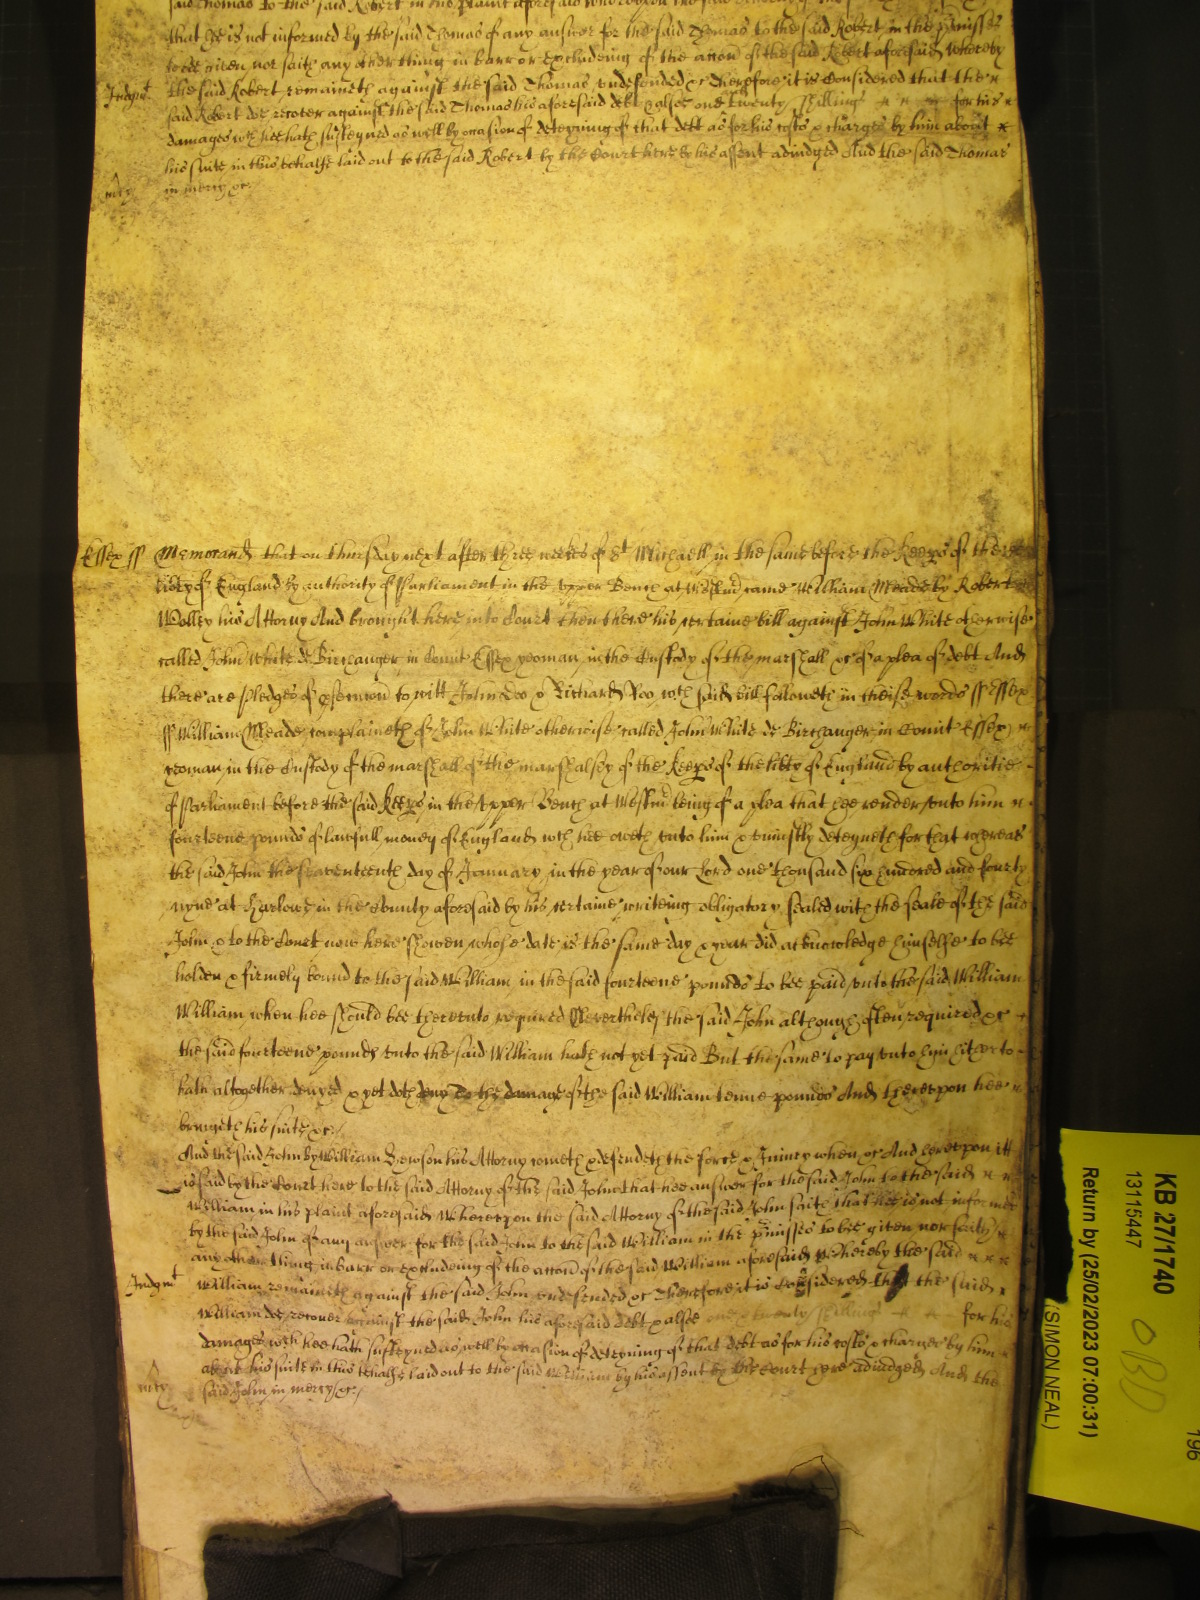 said Thomas to the said Robert in the plaint aforesaid
that he is not informed by the said Thomas of any answer for the said Thomas to the said Robert in the p'misses
to be given nor saith any other thing in barr or excludeing of the accon of the said Robert aforesaid Whereby
the said Robert remaineth against the said Thomas undefended &c Therefore it is Considered that the
Judgmt
said Robert doe recover against the said Thomas his aforesaid debt & alsoe one & twenty shillings for his
damages wch hee hath susteyned as well by occasion of deteyning of that debt as for his costs & charges by him about
his suite in this behalfe laid out to the said Robert by the Court here by his assent adiudged And the said Thomas
in mercy &c
mcy
Essex ss Memorand that on thursday next after three weekes of St Michaell in the same before the Keeps of the
libty of England by authority of Parliament in the upper Bench at Westm came William Meade by Robert
Wolley his Attorny And brought here into Court then there his certaine bill against John White otherwise
called John White de Birchanger in Comit Essex yeoman in the Custody of the marshall &c of a plea of debt And
there are pledges of p'secucon to witt John Doo & Richard Roo wch said bill followeth in theise words ss Essex
ss William Meade complaineth of John White otherwise called John White de Birchanger in Comit Essex
yeoman in the Custody of the marshall of the marshalsey of the Keeps of the libty of England by authoritie
of Parliament before the said Keeps in the upper Bench at Westm being of a plea that hee render unto him
fourteene pounds of lawfull money of England wch hee oweth unto him & uniustly deteyneth for that whereas
the said John the seaventeenth day of January in the year of our Lord one thousand six hundred and fourty
nyne at Harlowe in the County aforesaid by his certaine writeing obligatory sealed with the seale of the said
John & to the Court now here shewen whose date is the same day & year did acknowledge himselfe to bee
holden & firmely bound to the said William in the said fourteene pounds to bee paid unto the said William
William when hee should bee thereunto required Neverthelesse the said John although often required &c
the said fourteene pounds unto the said William hath not yet paid But the same to pay unto him hitherto
hath altogether denyed & yet doth deny To the damage of the said William tenne pounds And thereupon hee
bringeth his suite &c
And the said John by William his Attorny cometh & defendeth the force & Iniury when &c And hereupon itt
is said by the Court here to the said Attorny of the said John that hee answer for the said John to the said
William in his plaint aforesaid Whereupon the said Attorny of the said John saith that hee is not informed
by the said John of any answer for the said John to the said William in the p'misses to bee given nor saith
any other thing in barr or excludeing of the accon of the said William aforesaid Whereby the said
Judgmt
William remaineth against the said John undefended &c Therefore it is Considered that the said
William doe recover against the said John his aforesaid debt & alsoe one & twenty shillings for his
damages wch hee hath susteyned as well by occasion of deteyning of that debt as for his costs & charges by him
about his suite in this behalfe laid out to the said William by his assent by the Court here adiudged And the
mcy
said John in mercy &c
KB 27/1740
13115447
Return by (25/02/2023 07:00:31)
(SIMON NEAL)
OBD
196